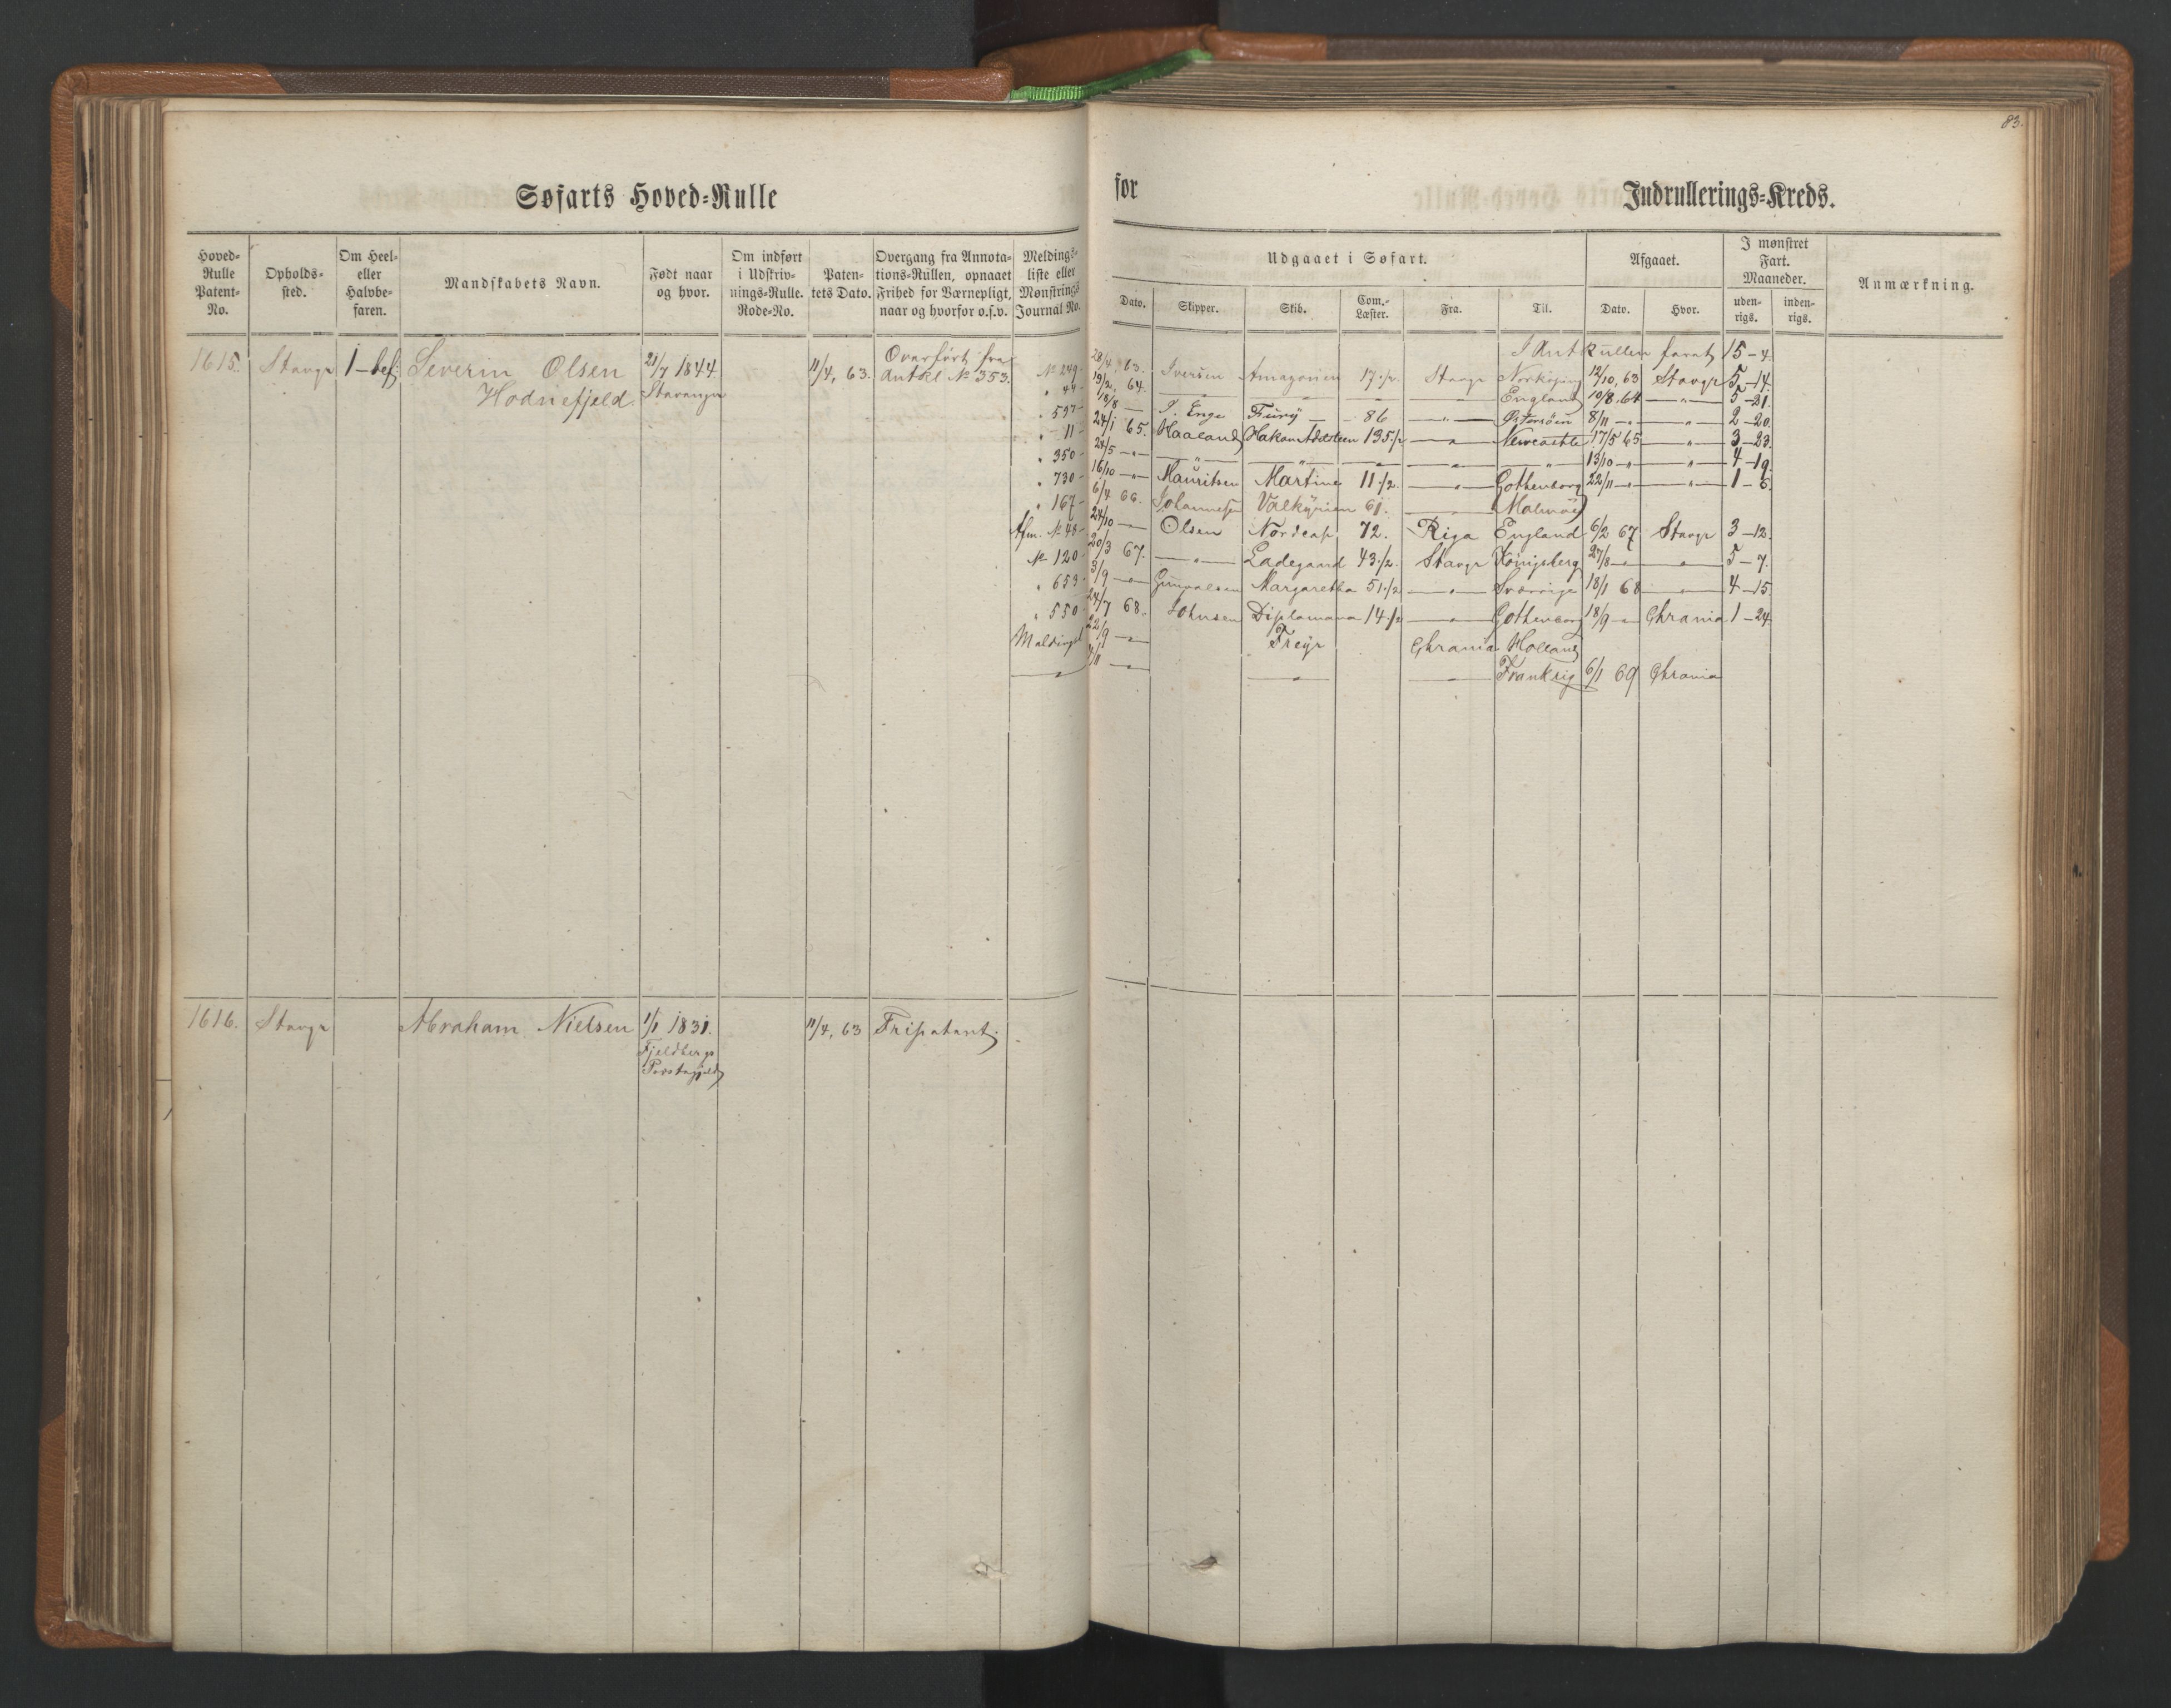 83.
Søfarts Hoved-Rulle
for Indrullerings-Kreds.
Hoved-Rulle Patent-No.
Opholds-sted.
Om Heel- eller Halvbe-faren.
Mandskabets Navn.
Født naar og hvor.
Om indført i Udskriv-nings-Rulle. Rode-No.
Paten-tets Dato.
Overgang fra Annota-tions-Rullen, opnaaet Frihed for Værnepligt, naar og hvorfor o.s.v.
Meldings-liste eller Mønstrings Journal No.
Udgaaet i Søfart.
Dato. Skipper. Skib. Com.-Læster. Fra. Til.
Afgaaet.
Dato. Hvor.
I mønstret Fart. Maaneder.
uden-rigs. inden-rigs.
Anmærkning.
1615. Stavgr 1-bef: Severin Olsen Hodnefjeld. 21/7 1844 Stavanger 11/4, 63. Overført fra AntRl № 353.
I AntRullen faret 15-4.
№ 249- 28/4, 63. Iversen Amagonien 17 1/2. Stavgr Norkøping 12/10, 63 Stavgr 5-14.
" 44- 19/2, 64. — " — — " — — " — England 10/8. 64 — " — 5-21.
" 597- 18/8 — T. Enge Fury — 86 — " — Østersöen 8/11 — " — — " — 2-20.
" 11- 24/1 65. Haaland Hakon Adelsteen 135 1/2 — " — Newcastle 17/5 65 — " — 3-23.
" 350- 24/5 — " — — " — — " — — " — — " — — " — 13/10 — " — — " — 4-19.
" 730- 16/10 — " — Mauritsen Martine 11 1/2. — " — Gothenborg 22/11 — " — — " — 1-6.
" 167- 6/4 66. Johannesen Valkyrien 61. — " — Malmöe
Afm. № 48- 24/10 — Olsen Nordcap 72. Riga England 6/2 67 Stavgr 3-12.
№ 120- 20/3 67. — " — Ladegaard 43 1/2. Stavgr Königsberg 27/8 — " — — " — 5-7.
" 653- 3/9 — " — Gunvalsen Margaretha 51 1/2 — " — Sverrige 18/1 68 — " — 4-15.
" 550- 24/7 68. Johnsen Diplomana 14 1/2 — " — Gothenborg 18/9 — " — Chrania 1-24
Meldingsl 22/9 — " — Freyr Chrania Holland
— " — 7/11 — " — — " — — " — Frankrig 6/1 69 Chrania
1616. Stavgr Abraham Nielsen 1/1 1831. Fjeldbergs Præstegjeld 11/4, 63 Fripatent.